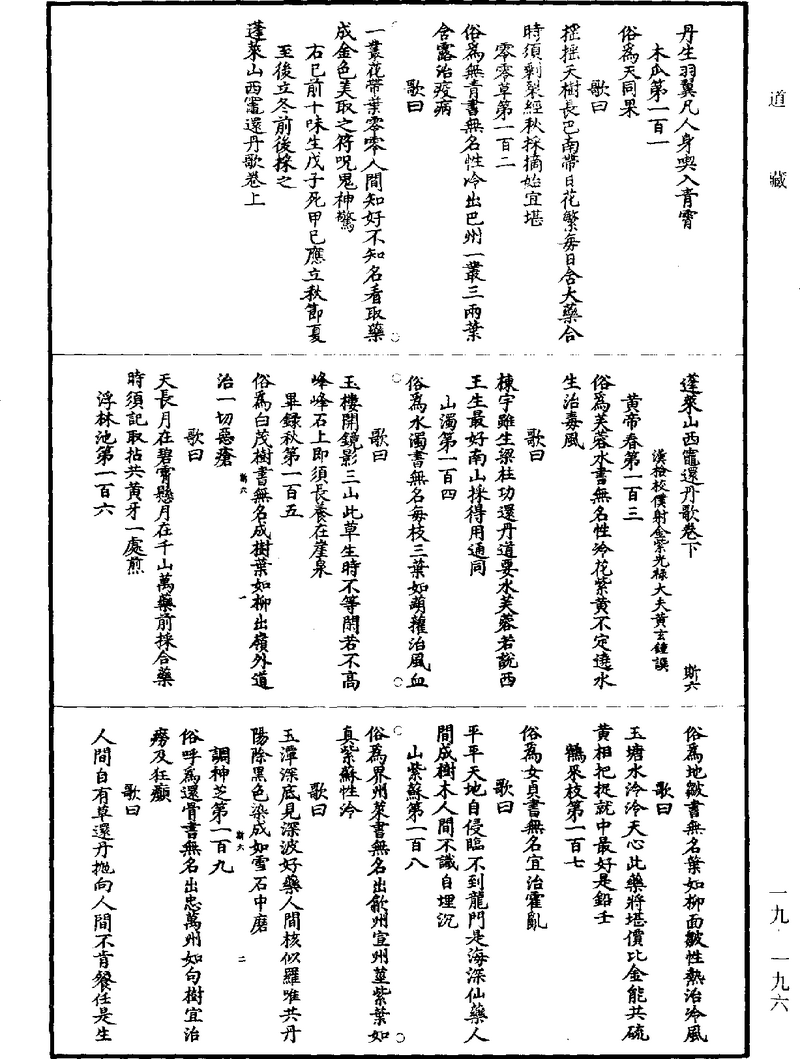 道藏
丹生羽翼凡人身喫入青霄
木瓜第一百一
俗為天同果
歌曰
搖搖天樹長巴南帶日花繁每日含大藥合
時須剝梨經秋採摘始宜堪
零零草第一百二
俗為無青書無名性冷出巴州一叢三兩葉
含露治疫病
歌曰
一叢花帶葉零零人間知好不知名看取藥
成金色美取之符呪鬼神驚
右已前十味生戊子死甲己應立秋節夏
至後立冬前後採之
蓬萊山西竈還丹歌卷上
蓬萊山西竈還丹歌卷下
斯六
漢檢校僕射金紫光祿大夫黃玄鍾譔
黃帝春第一百三
俗為芙蓉水書無名性冷花紫黃不定遶水
生治毒風
歌曰
棟宇雖生梁柱功還丹道要水芙蓉若說西
王生最好南山採得用通同
山濁第一百四
俗為水濁書無名每枝三葉如葫蘿治風血
歌曰
玉樓開鏡影三山此草生時不等閑若不高
峰峰石上即須長養在崖泉
畢錄秋第一百五
俗為白茂樹書無名成樹葉如柳出嶺外道
斯六
一
治一切惡瘡
歌曰
天長月在碧霄懸月在千山萬藥前採合藥
時須記取拈共黃牙一處煎
浮林池第一百六
俗為地皺書無名葉如柳面皺性熱治冷風
歌曰
玉塘水泠泠天心此藥將堪價比金能共硫
黃相把捉就中最好是鉛壬
鶴界枝第一百七
俗為女貞書無名宜治霍亂
歌曰
平平天地自侵臨不到龍門是海深仙藥人
間成樹木人間不識自埋沉
山紫蘇第一百八
俗為界州菜書無名出歙州宣州莖紫葉如
真紫蘇性冷
歌曰
玉潭深底見深波好藥人間核似羅唯共丹
陽除黑色染成如雪石中磨
調神芝第一百九
斯六
二
俗呼為還骨書無名出忠萬州如句樹宜治
癆及狂癲
歌曰
人間自有草還丹拋向人間不肯餐任是生
一九·一九六